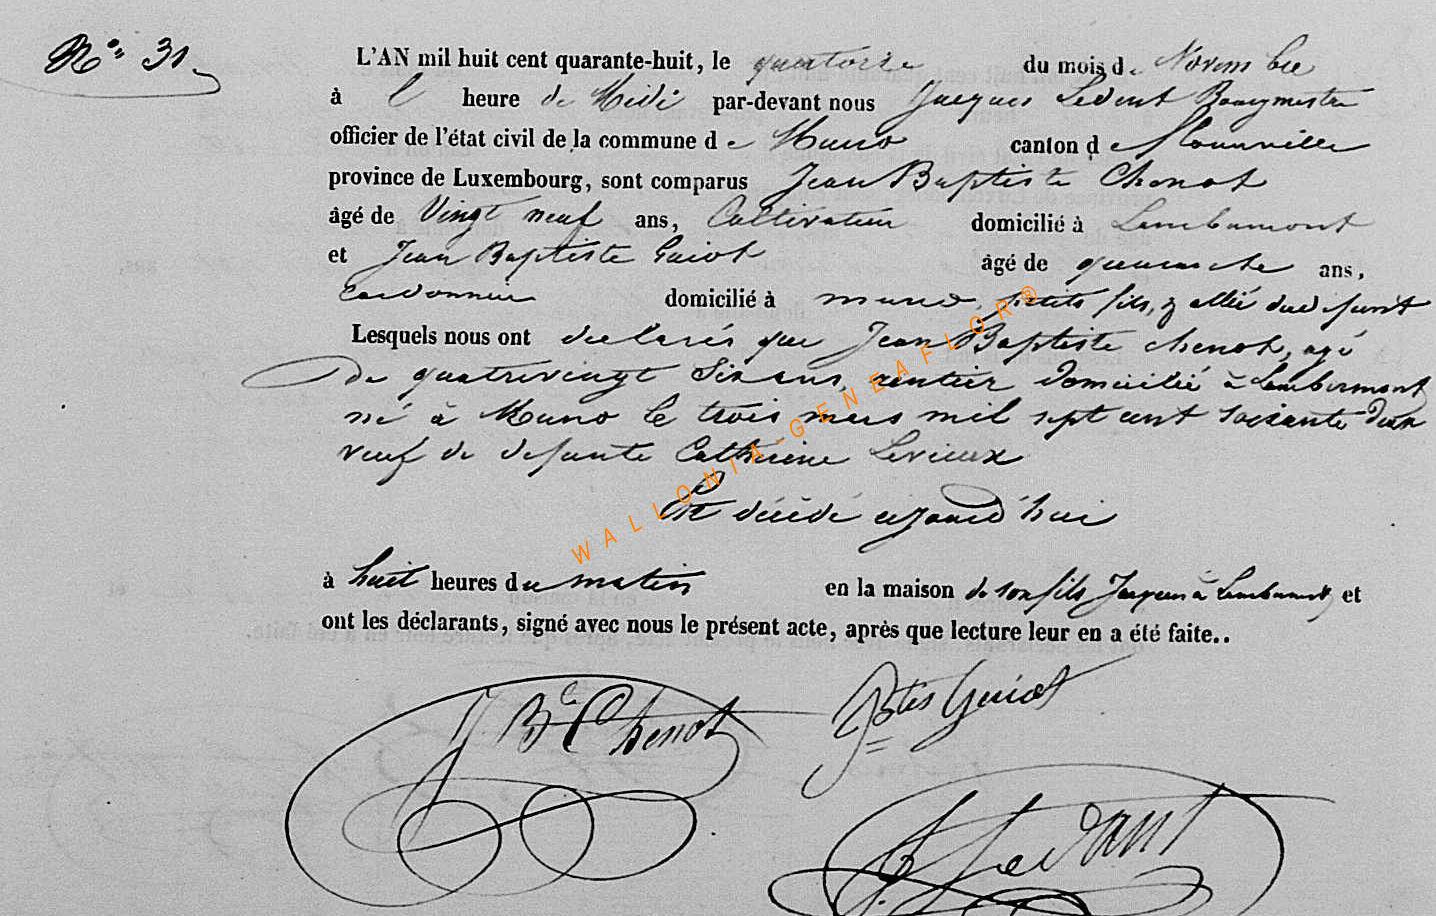 N° 31
L'AN mil huit cent quarante-huit, le quatorze du mois de Novembre
à l' heure de Midi par-devant nous Jacques Ledent Bourgmestre
officier de l'état civil de la commune de Muno canton de Florenville
province de Luxembourg, sont comparus Jean Baptiste Chenot
âgé de Vingt neuf ans, Cultivateur domicilié à Lambermont
et Jean Baptiste Guiot âgé de quarante ans,
Cordonnier domicilié à muno, petits fils, & allié du défunt
Lesquels nous ont déclarés que Jean Baptiste chenot, agé
De quatrevingt Six ans, rentier domicilié à Lambermont
né à Muno le trois mars mil sept cent soixante deux
veuf de defunte Catherine Levieux
Est décédé aujourd'hui
à huit heures du matin en la maison de son fils Jacques à Lambermont, et
ont les déclarants, signé avec nous le présent acte, après que lecture leur en a été faite..
J. Bte Chenot Jbtes Guiot
J. Ledent
WALLONIA-GENEAFLOR®